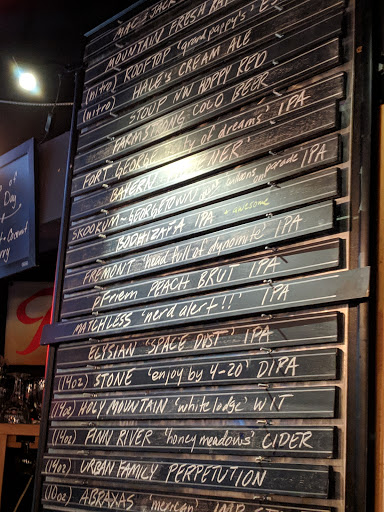 MAC & JACK
MOUNTAIN FRESH
(nitro) ROOFTOP 'grandpappy's' ES
(nitro) HALE'S CREAM ALE
STOUP NW HOPPY RED
FARMSTRONG COLD BEER
FORT GEORGE 'city of dreams' IPA
BAVERN
SKOOKUM~GEORGETOWN parade IPA
BODHIZAFA IPA awesome
FREMONT 'head full of dynomite' IPA
pFriem PEACH BRUT IPA
MATCHLESS 'nerd alert!!' IPA
ELYSIAN 'SPACE DUST' IPA
(14oz) STONE 'enjoy by 4-20' DIPA
(14oz) HOLY MOUNTAIN 'white lodge' WIT
(14oz) FINN RIVER 'honey meadows' CIDER
(14oz) URBAN FAMILY PERPETUTION
(10oz) ABRAXAS 'mexican' IMP
of
Day
Coconut